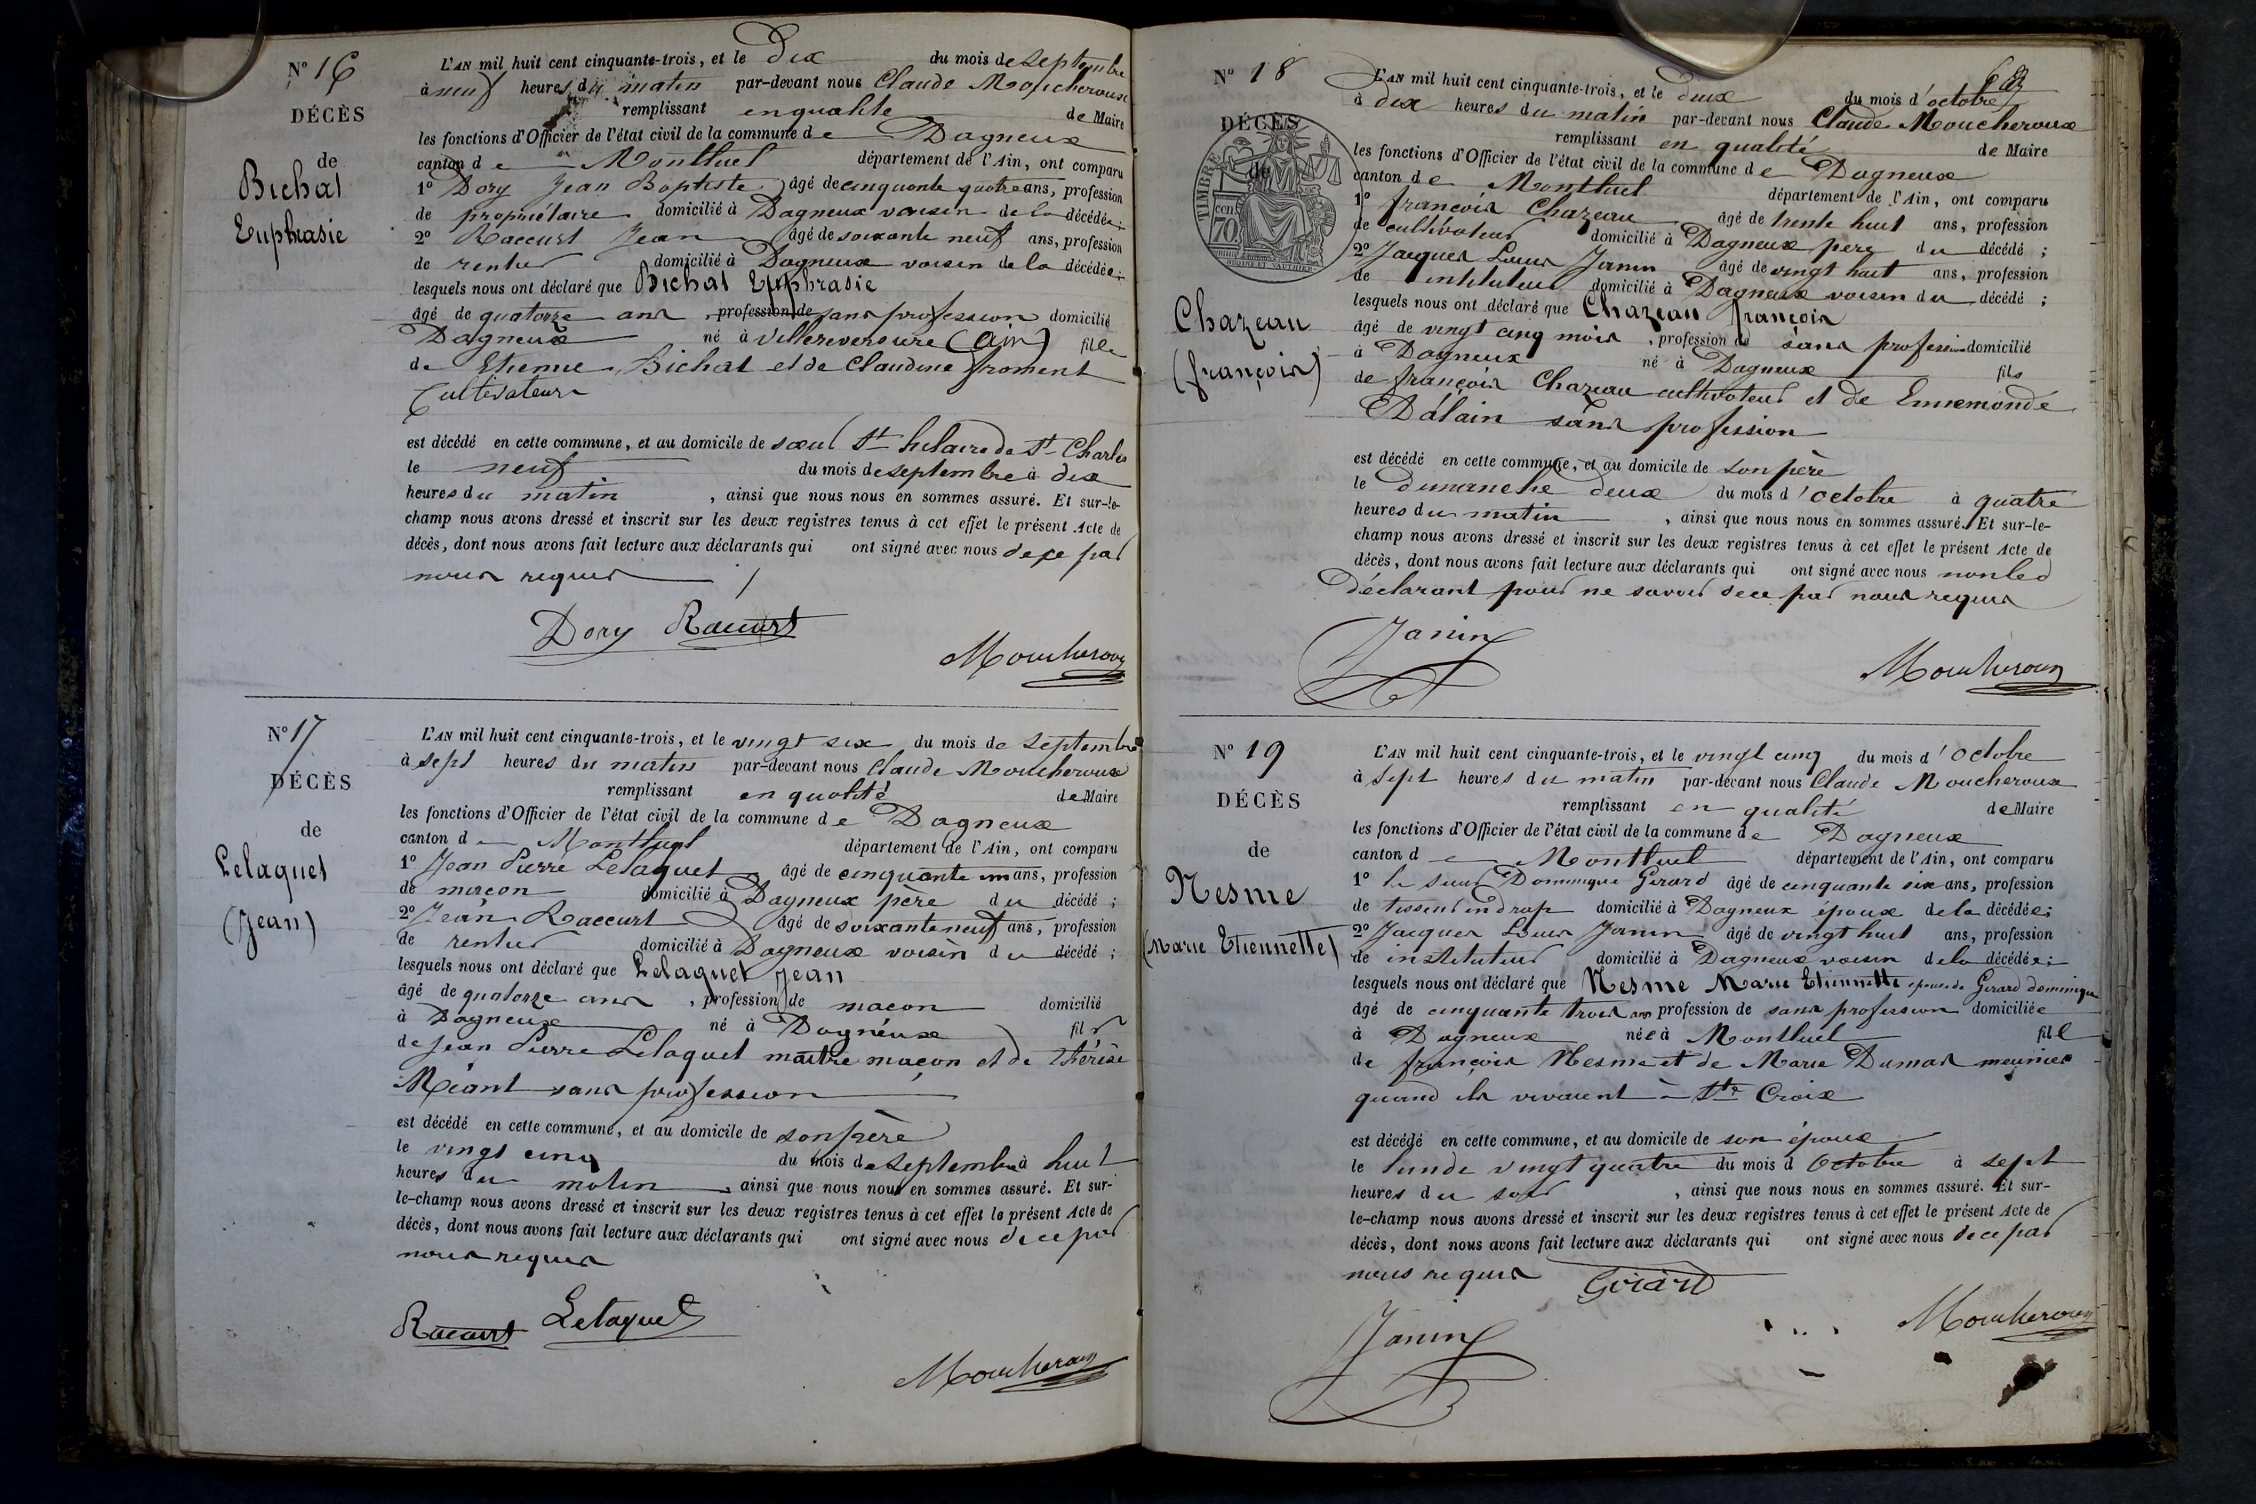 Nº 16
DÉCÈS
de
Bichat
Euphrasie
L'AN mil huit cent cinquante-trois, et le Dix du mois de septembre
à neuf heures du matin par-devant nous Claude Moucheroux
remplissant en qualité de Maire
les fonctions d'Officier de l'état civil de la commune de Dagneux
canton de Montluel département de l'Ain, ont comparu
1º Dory Jean Baptiste âgé de cinquante quatre ans, profession
de propriétaire domicilié à Dagneux voisin de la décédée;
2º Raccurt Jean âgé de soixante neuf ans, profession
de rentier domicilié à Dagneux voisin de la décédée;
lesquels nous ont déclaré que Bichat Euphrasie
âgé de quatorze ans, profession de sans profession domicilié
Dagneux né à Villereversure (Ain) fille
de Etienne Bichat et de Claudine froment
Cultivateurs
est décédé en cette commune, et au domicile de sœur St hilaire de St Charles
le neuf du mois de septembre à dix
heures du matin, ainsi que nous nous en sommes assuré. Et sur-le-
champ nous avons dressé et inscrit sur les deux registres tenus à cet effet le présent Acte de
décès, dont nous avons fait lecture aux déclarants qui ont signé avec nous de ce par
nous requis
Dory Raccurt
Moucheroux
Nº 17
DÉCÈS
de
Lelaquet
(Jean)
L'AN mil huit cent cinquante-trois, et le vingt six du mois de septembre
à sept heures du matin par-devant nous Claude Moucheroux
remplissant en qualité de Maire
les fonctions d'Officier de l'état civil de la commune de Dagneux
canton de Montluel département de l'Ain, ont comparu
1º Jean Pierre Lelaquet âgé de cinquante un ans, profession
de maçon domicilié à Dagneux père du décédé;
2º Jean Raccurt âgé de soixante neuf ans, profession
de rentier domicilié à Dagneux voisin du décédé;
lesquels nous ont déclaré que Lelaquet Jean
âgé de quatorze ans, profession de maçon domicilié
à Dagneux né à Dagneux fils
de Jean Pierre Lelaquet maître maçon et de Thérèse
Méant sans profession
est décédé en cette commune, et au domicile de son père
le vingt cinq du mois de septembre à huit
heures du matin, ainsi que nous nous en sommes assuré. Et sur-
le-champ nous avons dressé et inscrit sur les deux registres tenus à cet effet le présent Acte de
décès, dont nous avons fait lecture aux déclarants qui ont signé avec nous de ce par
nous requis
Raccurt Lelaquet
Moucheroux
Nº 18
DÉCÈS
de
TIMBRE
70 cen
Chazeau
(françois)
L'AN mil huit cent cinquante-trois, et le deux du mois d'octobre
à dix heures du matin par-devant nous Claude Moucheroux
remplissant en qualité de Maire
les fonctions d'Officier de l'état civil de la commune de Dagneux
canton de Montluel département de l'Ain, ont comparu
1º françois Chazeau âgé de trente huit ans, profession
de cultivateur domicilié à Dagneux père du décédé;
2º Jacques Louis Janin âgé de vingt huit ans, profession
de instituteur domicilié à Dagneux voisin du décédé;
lesquels nous ont déclaré que Chazeau françois
âgé de vingt cinq mois, profession de sans profession domicilié
à Dagneux né à Dagneux fils
de françois Chazeau cultivateur et de Ennemonde
Dalain sans profession
est décédé en cette commune, et au domicile de son père
le dimanche deux du mois d'octobre à quatre
heures du matin, ainsi que nous nous en sommes assuré. Et sur-le-
champ nous avons dressé et inscrit sur les deux registres tenus à cet effet le présent Acte de
décès, dont nous avons fait lecture aux déclarants qui ont signé avec nous non led
déclarant pour ne savoir de ce par nous requis
Janin
Moucheroux
Nº 19
DÉCÈS
de
Nesme
(Marie Etiennette)
L'AN mil huit cent cinquante-trois, et le vingt cinq du mois d'octobre
à sept heures du matin par-devant nous Claude Moucheroux
remplissant en qualité de Maire
les fonctions d'Officier de l'état civil de la commune de Dagneux
canton de Montluel département de l'Ain, ont comparu
1º le sieur Dominique Gerard âgé de cinquante six ans, profession
de tisseur en drap domicilié à Dagneux époux de la décédée;
2º Jacques Louis Janin âgé de vingt huit ans, profession
de instituteur domicilié à Dagneux voisin de la décédée;
lesquels nous ont déclaré que Nesme Marie Etiennette épouse de Gerard dominique
âgé de cinquante trois ans profession de sans profession domiciliée
à Dagneux née à Montluel fille
de françois Nesme et de Marie Dumas meunier
quand ils vivaient à Ste Croix
est décédé en cette commune, et au domicile de son époux
le lundi vingt quatre du mois d octobre à sept
heures du soir, ainsi que nous nous en sommes assuré. Et sur-
le-champ nous avons dressé et inscrit sur les deux registres tenus à cet effet le présent Acte de
décès, dont nous avons fait lecture aux déclarants qui ont signé avec nous de ce par
nous requis Girard
Janin
Moucheroux